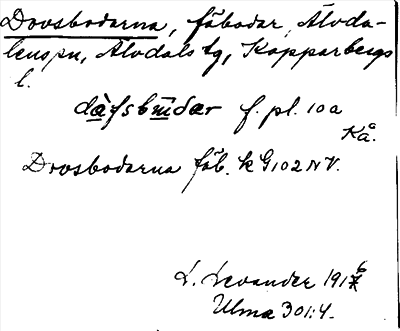 Dovsbodarna, fäbodar, Älvda-
lens sn, Älvdals tg, Kopparbergs
l.
dàfsbūdær f. pl. 10a
KÅ.
Dovsbodarna fäb. k G102 NV.
L. Levander 1916
Ulma 301:4.